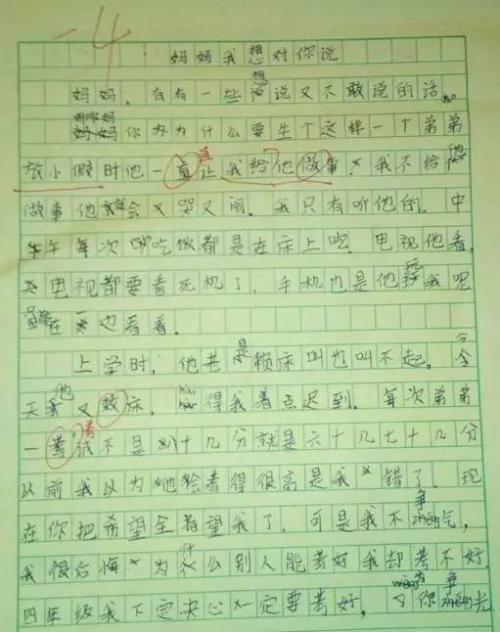 -4
妈妈我想对你说
妈妈，自有一些想说又不敢说的话。
妈妈你为什么要生个这样一个弟弟
放小假时他一直让我给他做事，我不给他
做事他就会又哭又闹。我只有听他的。中
午每次吃饭都是在床上吃。电视他看，
电视都要看死机了，手机也是他玩我呢
在也看着。
上学时，他老是赖床叫也叫不起。今
天他又床，得我着点迟到。每次弟弟
一考试不是几十几分就是六十几七十几分
以前我以为他会考得很高是我错了。现
在你把希望全着望我了，可是我不争气，
我很后悔为什么别人能考好我却考不好
四年级我下定决心一定要考好，为你争光